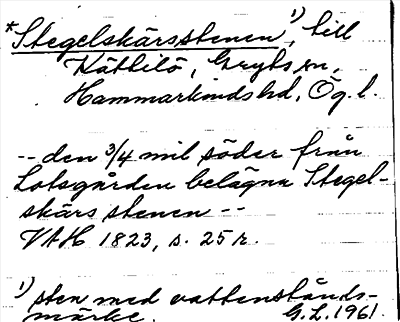 *Stegelskärsstenen, 1) till
Kättilö, Gryts sn,
Hammarkinds hd, Ög. l.
-- den 3/4 mil söder från
Lotsgården belägna Stegel-
skärs stenen --
VAH 1823, s. 25 r.
1) sten med vattenstånds-
märke. G.L. 1961.